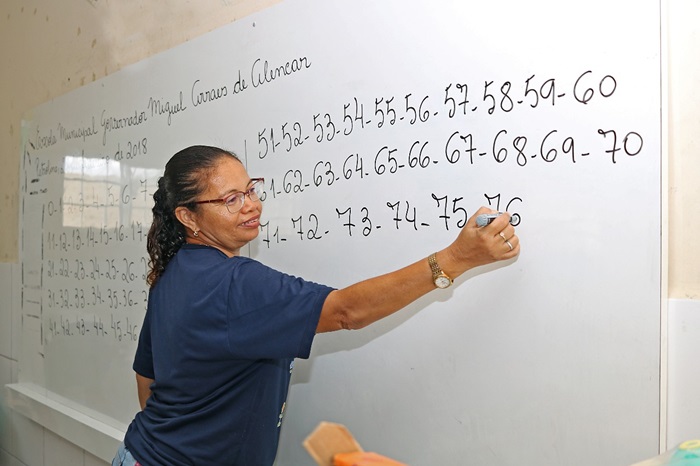 Escola Municipal Governador Miguel Arraes de Alencar
de 2018
11-12-13-14-15-16-17
21-22-23-24-25-26-2
31-32-33-34-35-36-3
41-42-43-44-45-46
51-52-53-54-55-56-57-58-59-60
61-62-63-64-65-66-67-68-69-70
71-72-73-74-75-76